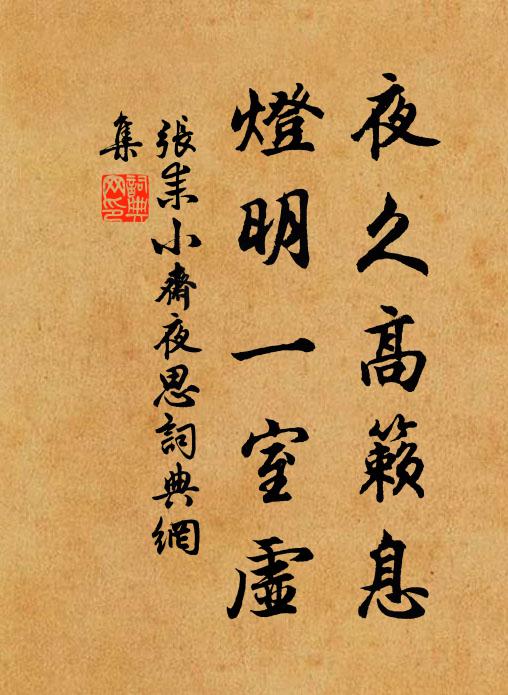 夜久高籟息
燈明一室虛
張耒小齋夜思詞典網
集
詞典
网印